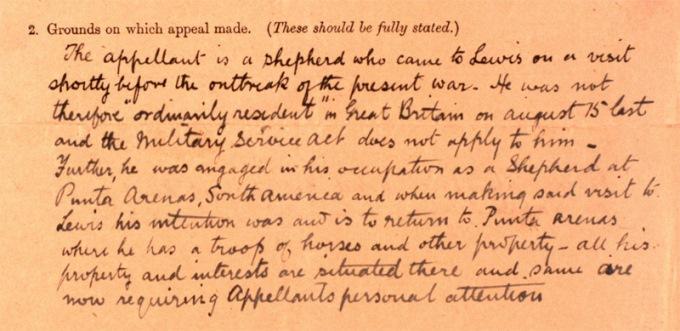 2. Grounds on which appeal made. (These should be fully stated.)
The appellant is a shepherd who came to Lewis on a visit
shortly before the outbreak of the present war. He was not
therefore "ordinarily resident" in Great Britain on august 15 last
and the Military Service Act does not apply to him -
Further, he was engaged in his occupation as a Shepherd at
Punta Arenas, South America and when making said visit to
Lewis his intention was and is to return to Punta arenas
where he has a troop of horses and other property - all his
property and interests are situated there and same are
now requiring Appellants personal attention